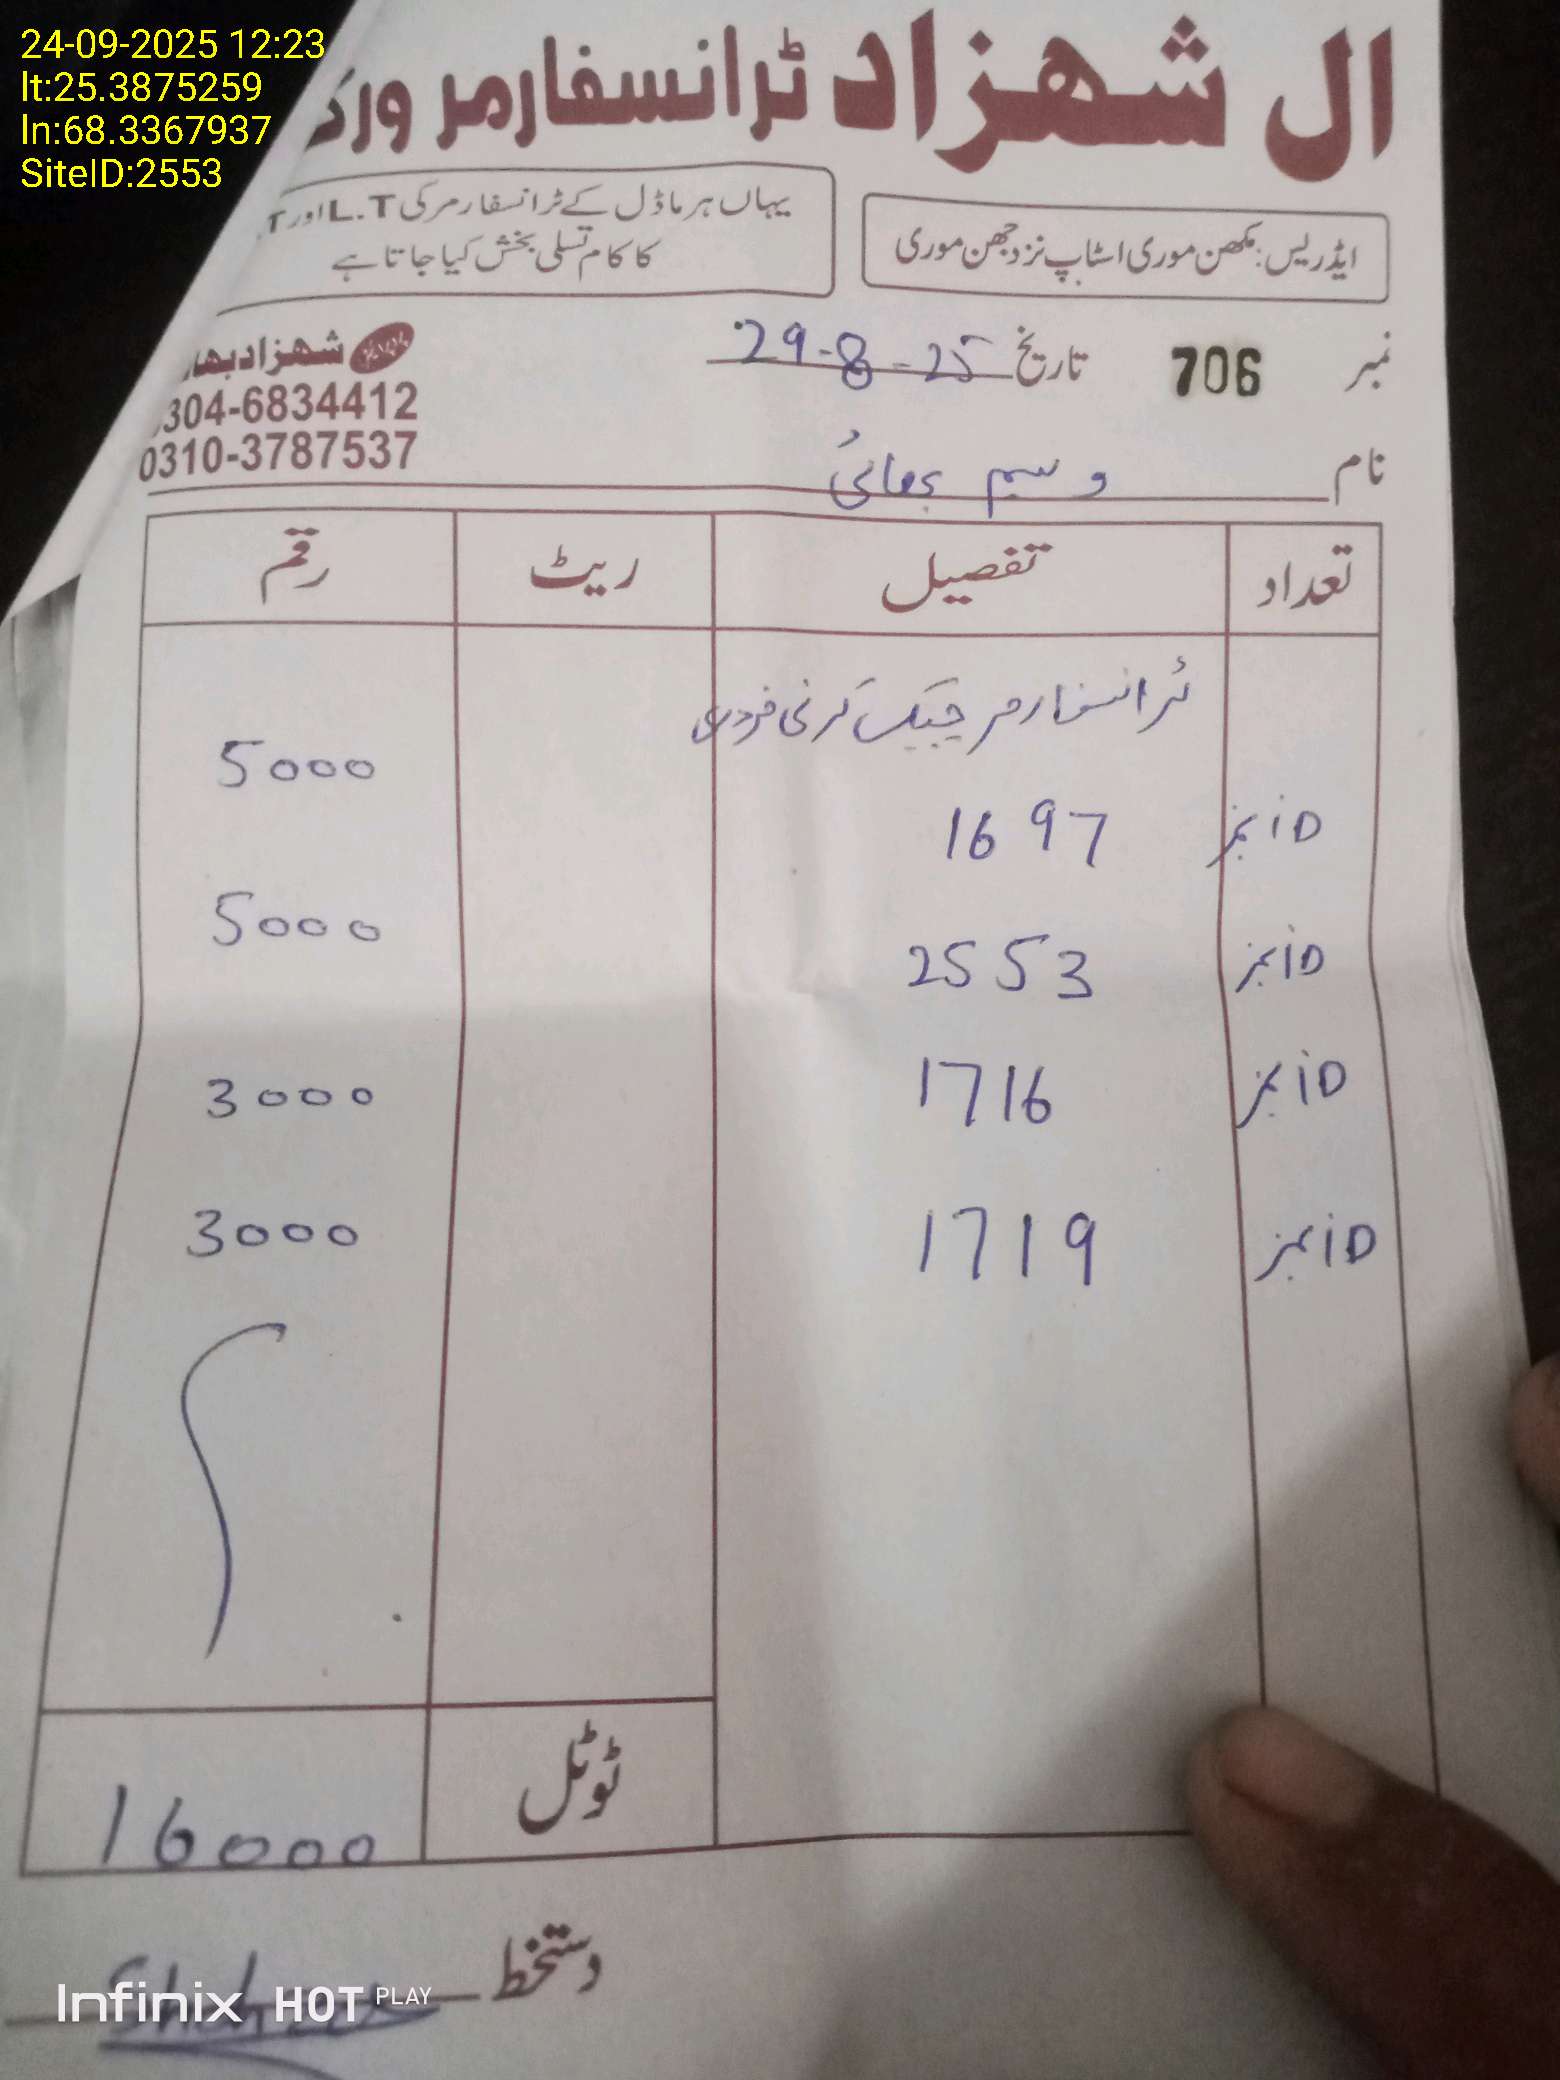 24-09-2025 12:23
lt:25.3875259
ln:68.3367937
SiteID:2553
ال شہزاد ٹرانسفارمر ورک
ایڈریس: مکھن موری اسٹاپ نزد جھن موری
یہاں ہر ماڈل کے ٹرانسفارمر کی L.T اور T
کا کام تسلی بخش کیا جاتا ہے
نمبر 706 تاریخ 29-8-25
شہزاد بھا
304-6834412
0310-3787537
نام وسیم بھائی
تعداد تفصیل ریٹ رقم
ٹرانسفارمر چیک کرنی مزدوری
5000
iD نمبر 1697
5000
iD نمبر 2553
iD نمبر 1716 3000
iD نمبر 1719 3000
ٹوٹل 16000
دستخط
Infinix HOT PLAY